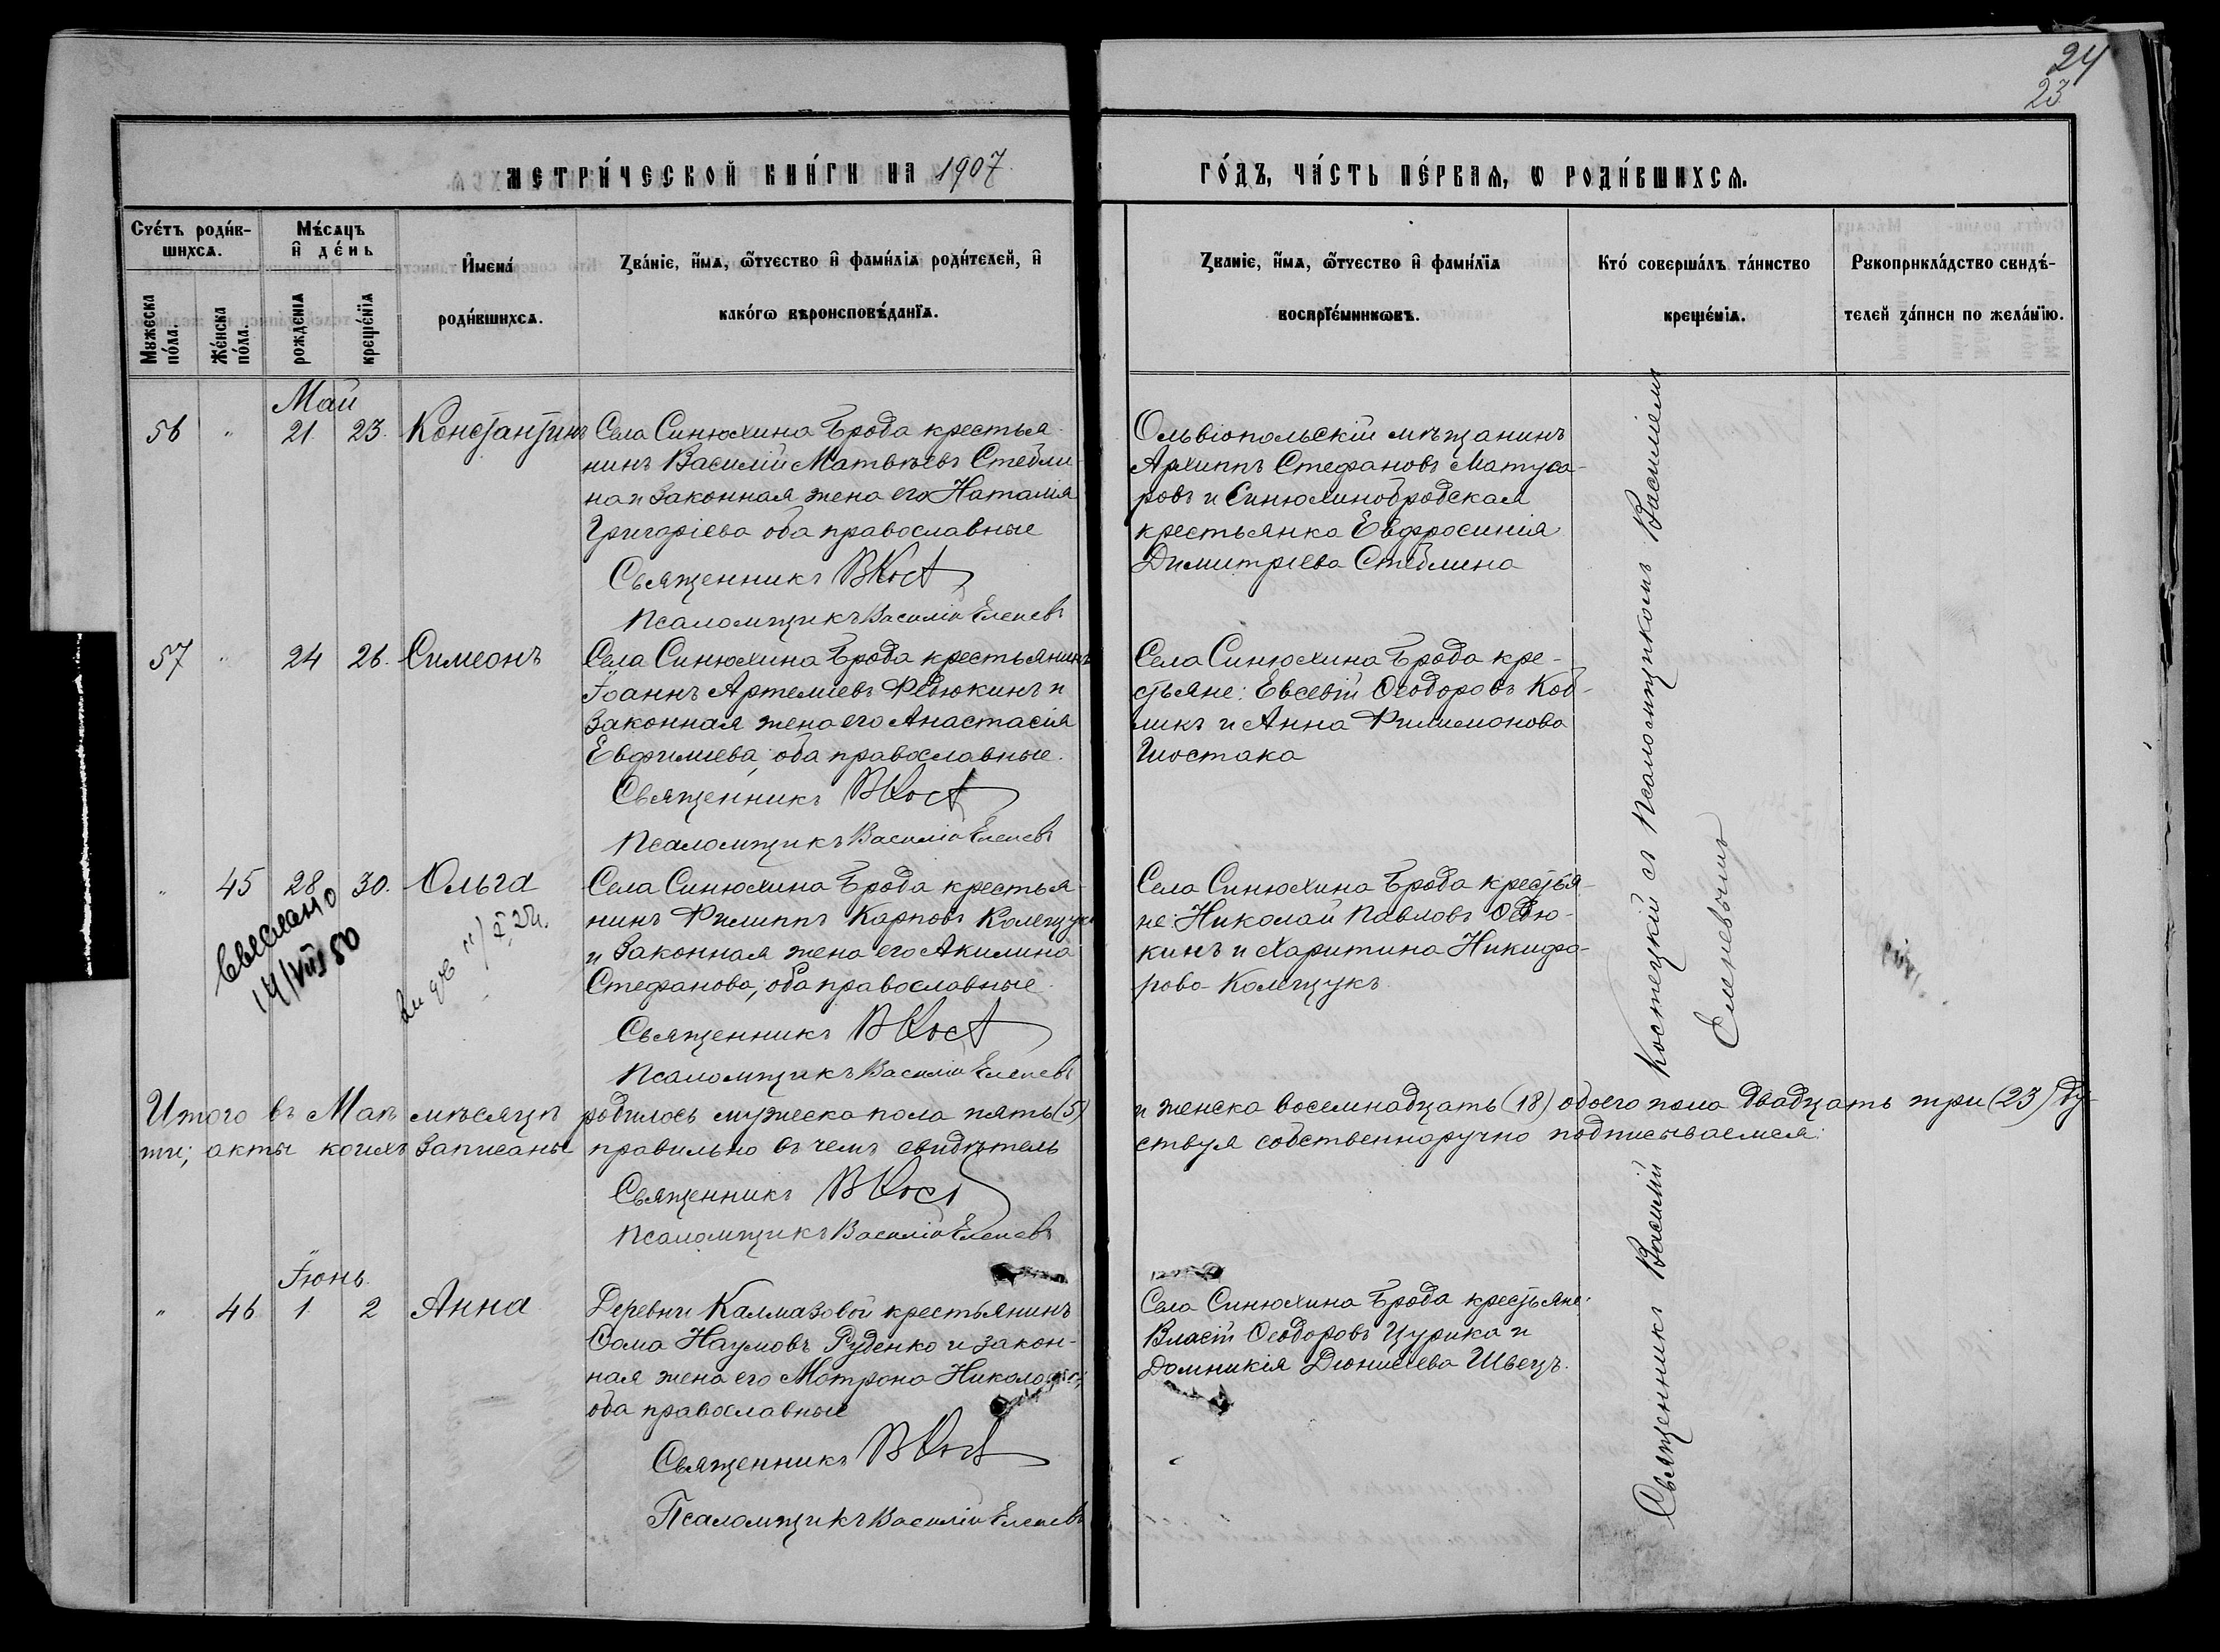 24
23
МЕТРИ́ЧЕСКОЙ КНИ́ГИ НА 1907
ГО́ДЪ, ЧА́СТЬ ПЕ́РВАѦ, Ѡ РОДИ́ВШИХСѦ.
Сче́тъ роди́в-
шихсѧ.
Мꙋжеска по́ла.
Же́нска по́ла.
Мѣ́сѧцъ
и҆ де́нь
рожденїѧ
креще́нїѧ
И҆мена́
роди́вшихсѧ.
Зва́нїе, и҆́мѧ, ѻ҆́тчество и҆ фами́лїѧ роди́телей, и҆
како́гѡ вѣроисповѣ́данїѧ.
Званїе, и҆́мѧ, ѻ҆́тчество и҆ фами́лїѧ
воспрїе́мникѡвъ.
Кто́ соверша́лъ та́инство
креще́нїѧ.
Рꙋкоприкла́дство свидѣ́-
телей за́писи по жела́нїю.
Май
56 " 21. 23. Константинъ
Села Синюхина Брода крестья-
нинъ Василій Матвѣевъ Стебли-
на и законная жена его Наталія
Григоріева оба православные
Священникъ ВКост
Псаломщикъ Василій Еленевъ
Ольвіопольскій мѣщанинъ
Архиппъ Стефановъ Матуса-
ровъ и Синюхинобродская
крестьянка Евфросинія
Димитріева Стеблина
57 " 24 26. Симеонъ
Села Синюхина Брода крестьянинъ
Іоаннъ Артеміевъ Федюкинъ и
законная жена его Анастасія
Евфиміева, оба православные.
Священникъ ВКост
Псаломщикъ Василій Еленевъ
Села Синюхина Брода кре-
стьяне: Евсевій Ѳеодоровъ Коб-
ликъ и Анна Филимонова
Шостака
" 45 28 30. Ольга
Села Синюхина Брода крестья-
нинъ Филиппъ Карповъ Колещукъ
и законная жена его Акилина
Стефанова, оба православные.
Священникъ ВКост
Псаломщикъ Василій Еленевъ
Села Синюхина Брода крестья-
не: Николай Павловъ Ѳедю-
кинъ и Харитина Никифо-
рова Колещукъ.
14/VIII 50
Итого въ Маѣ мѣсяцѣ родилось мужеска пола пять (5) и женска восемнадцать (18) обоего пола двадцать три (23) ду-
ши; акты коихъ записаны правильно въ чемъ свидѣтель ствуя собственноручно подписываемся:
Священникъ ВКост
Псаломщикъ Василій Еленевъ
Іюнь
" 46 1. 2 Анна
Деревни Калмазовой крестьянинъ
Ѳома Наумовъ Руденко и закон-
ная жена его Мотрона
оба православные
Священникъ ВКост
Псаломщикъ Василій Еленевъ
Села Синюхина Брода крестьяне:
Власій Ѳеодоровъ Цурика и
Домникія Діонисіева Швецъ.
Священникъ Василій Костецкій съ Псаломщикомъ Василіемъ
Еленевымъ